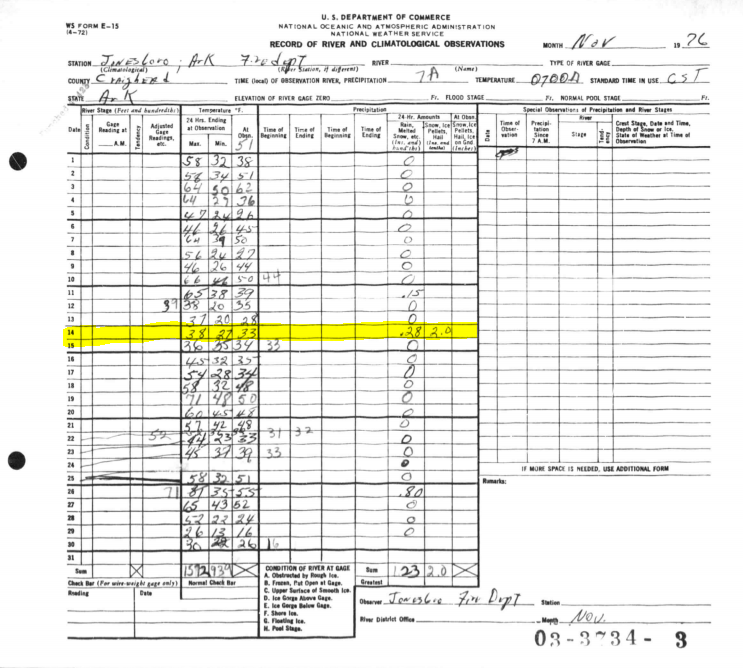 U. S. DEPARTMENT OF COMMERCE
WS FORM E-15
(4-72)
NATIONAL OCEANIC AND ATMOSPHERIC ADMINISTRATION
NATIONAL WEATHER SERVICE
RECORD OF RIVER AND CLIMATOLOGICAL OBSERVATIONS
MONTH Nov 1976
STATION Jonesboro, Ark Fire dept RIVER TYPE OF RIVER GAGE
(Climatological) (River Station, if different) (Name)
COUNTY Craighead TIME (local) OF OBSERVATION RIVER, PRECIPITATION 7A TEMPERATURE 0700A STANDARD TIME IN USE CST
STATE Ark ELEVATION OF RIVER GAGE ZERO Ft. FLOOD STAGE Ft. NORMAL POOL STAGE Ft.
River Stage (Feet and hundredths) Temperature °F. Precipitation Special Observations of Precipitation and River Stages
Date Condition Gage Reading at A.M. Tendency Adjusted Gage Readings, etc. 24 Hrs. Ending at Observation Max. Min. At Obsn. 51 Time of Beginning Time of Ending Time of Beginning Time of Ending 24-Hr. Amounts Rain, Melted Snow, etc. (Ins. and hundths) Snow, Ice Pellets, Hail (Ins. and tenths) At Obsn. Snow, Ice Pellets, Hail, Ice on Gnd (Inches)
Date Time of Obser-vation Precipi-tation Since 7 A.M. River Stage Tend-ency Crest Stage, Date and Time, Depth of Snow or Ice, State of Weather at Time of Observation
1 58 32 38 0
2 58 34 51 0
3 64 50 62 0
4 64 27 36 0
5 47 24 26 0
6 46 26 45 0
7 64 39 50 0
8 56 24 27 0
9 46 26 44 0
10 66 50 44 0
11 65 38 39 .15
12 39 38 20 35 0
13 37 20 28 0
14 38 27 33 .28 2.0
15 36 34 33 0
16 45 32 35 0
17 54 28 34 0
18 58 32 48 0
19 71 48 50 0
20 60 45 48 0
21 57 42 48 0
22 52 44 23 33 31 32 0
23 45 37 39 33 0
24 0
25 58 32 51 0
26 71 35 55 .80
27 65 43 52 0
28 52 22 24 0
29 26 13 16 0
30 30 26 16
31
Sum 1592 939 Sum 1 23 2.0
IF MORE SPACE IS NEEDED, USE ADDITIONAL FORM
Remarks:
Check Bar (For wire-weight gage only) Normal Check Bar Greatest
Reading Date
CONDITION OF RIVER AT GAGE
A. Obstructed by Rough Ice.
B. Frozen, Put Open at Gage.
C. Upper Surface of Smooth Ice.
D. Ice Gorge Above Gage.
E. Ice Gorge Below Gage.
F. Shore Ice.
G. Floating Ice.
H. Pool Stage.
Observer Jonesboro Fire Dept Station
River District Office Month Nov.
03-3734-3